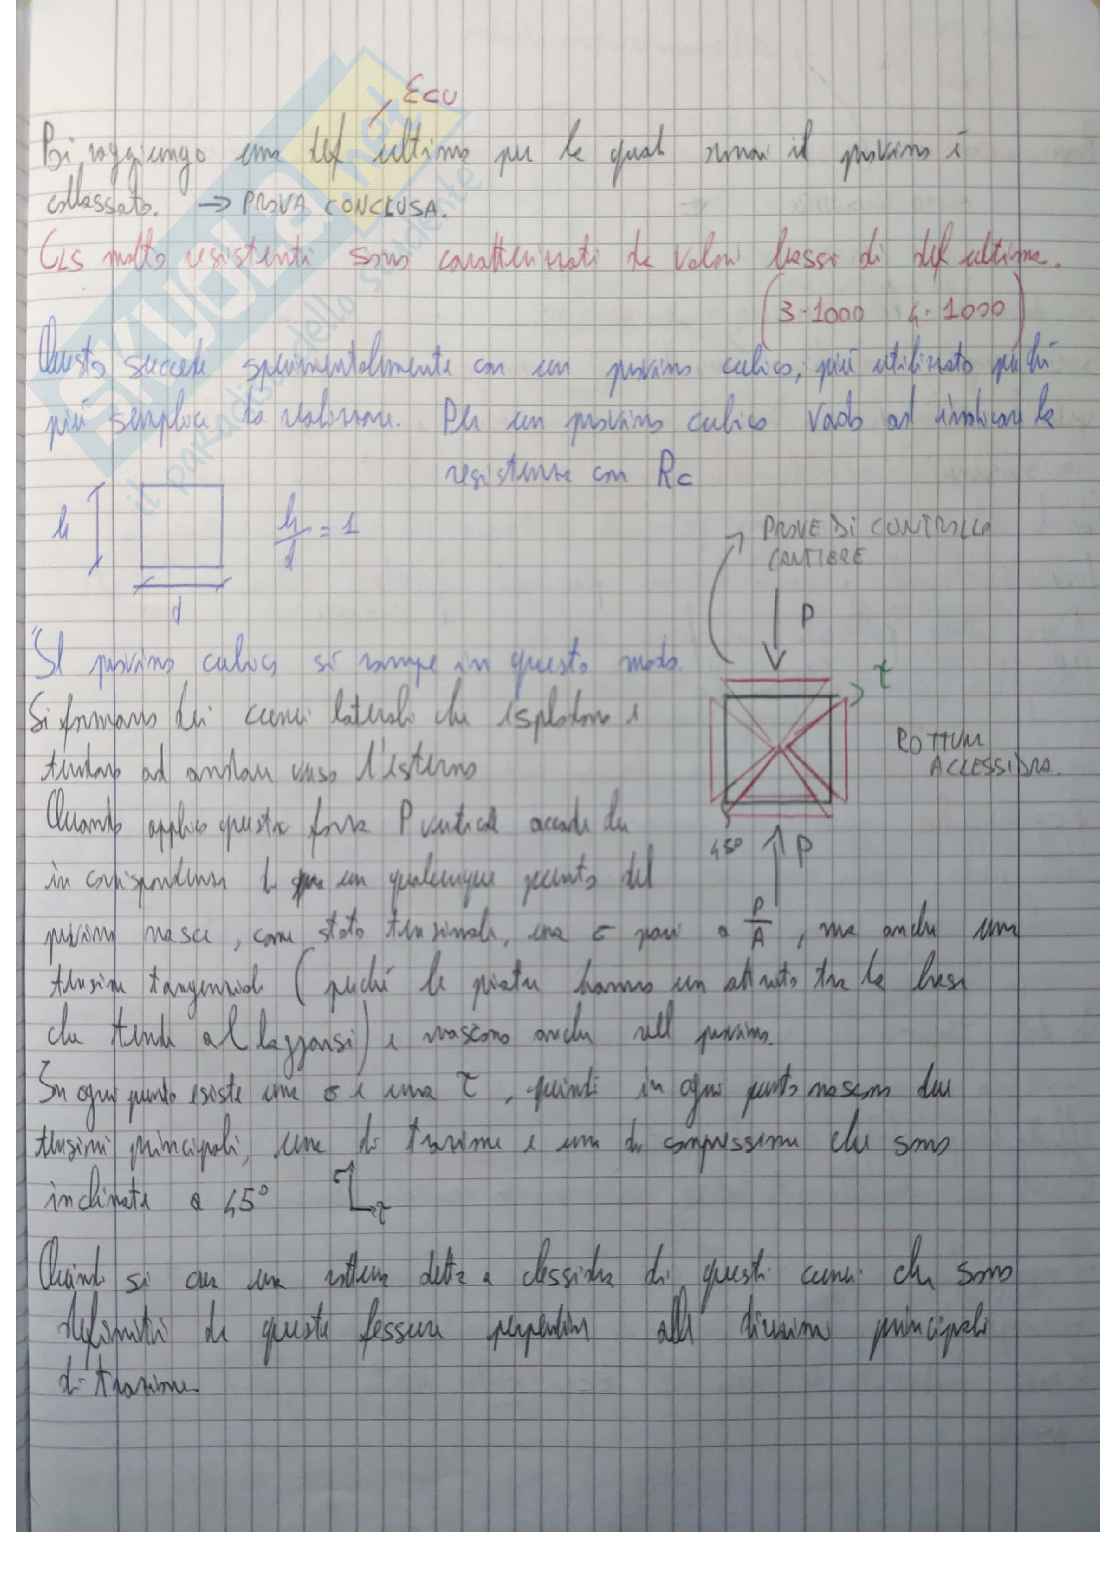 εcu
Poi raggiungo una def ultima per la quale ormai il provino è
collassato. → PROVA CONCLUSA.
CLS molto resistenti sono caratterizzati da valori bassi di def ultima.
(3·1000 4·1000)
Questo succede sperimentalmente con un provino cubico, più utilizzato perché
più semplice da realizzare. Per un provino cubico vado ad indicare la
resistenza con Rc
h h/d = 1
d
PROVE DI CONTROLLO
CANTIERE
P
Il provino cubico si rompe in questo modo.
τ
Si formano dei cunei laterali che esplodono e
tendono ad andare verso l'esterno
ROTTURA
A CLESSIDRA.
Quando applico questa forza P verticale accade che
45° P
in corrispondenza di un qualunque punto del
provino nasce, come stato tensionale, una σ pari a P/A, ma anche una
tensione tangenziale (perché le piastre hanno un attrito tra la base
che tende al lazzarsi) e nascono anche nel provino.
In ogni punto esiste una σ e una τ, quindi in ogni punto nascono due
tensioni principali, una di trazione e una di compressione che sono
inclinate a 45° σ τ
Quindi si ava una rottura detta a clessidra di questi cunei che sono
definiti da queste fessure perpendim alle direzioni principali
di trazione.
SKUOLA.net
il paradiso dello studente